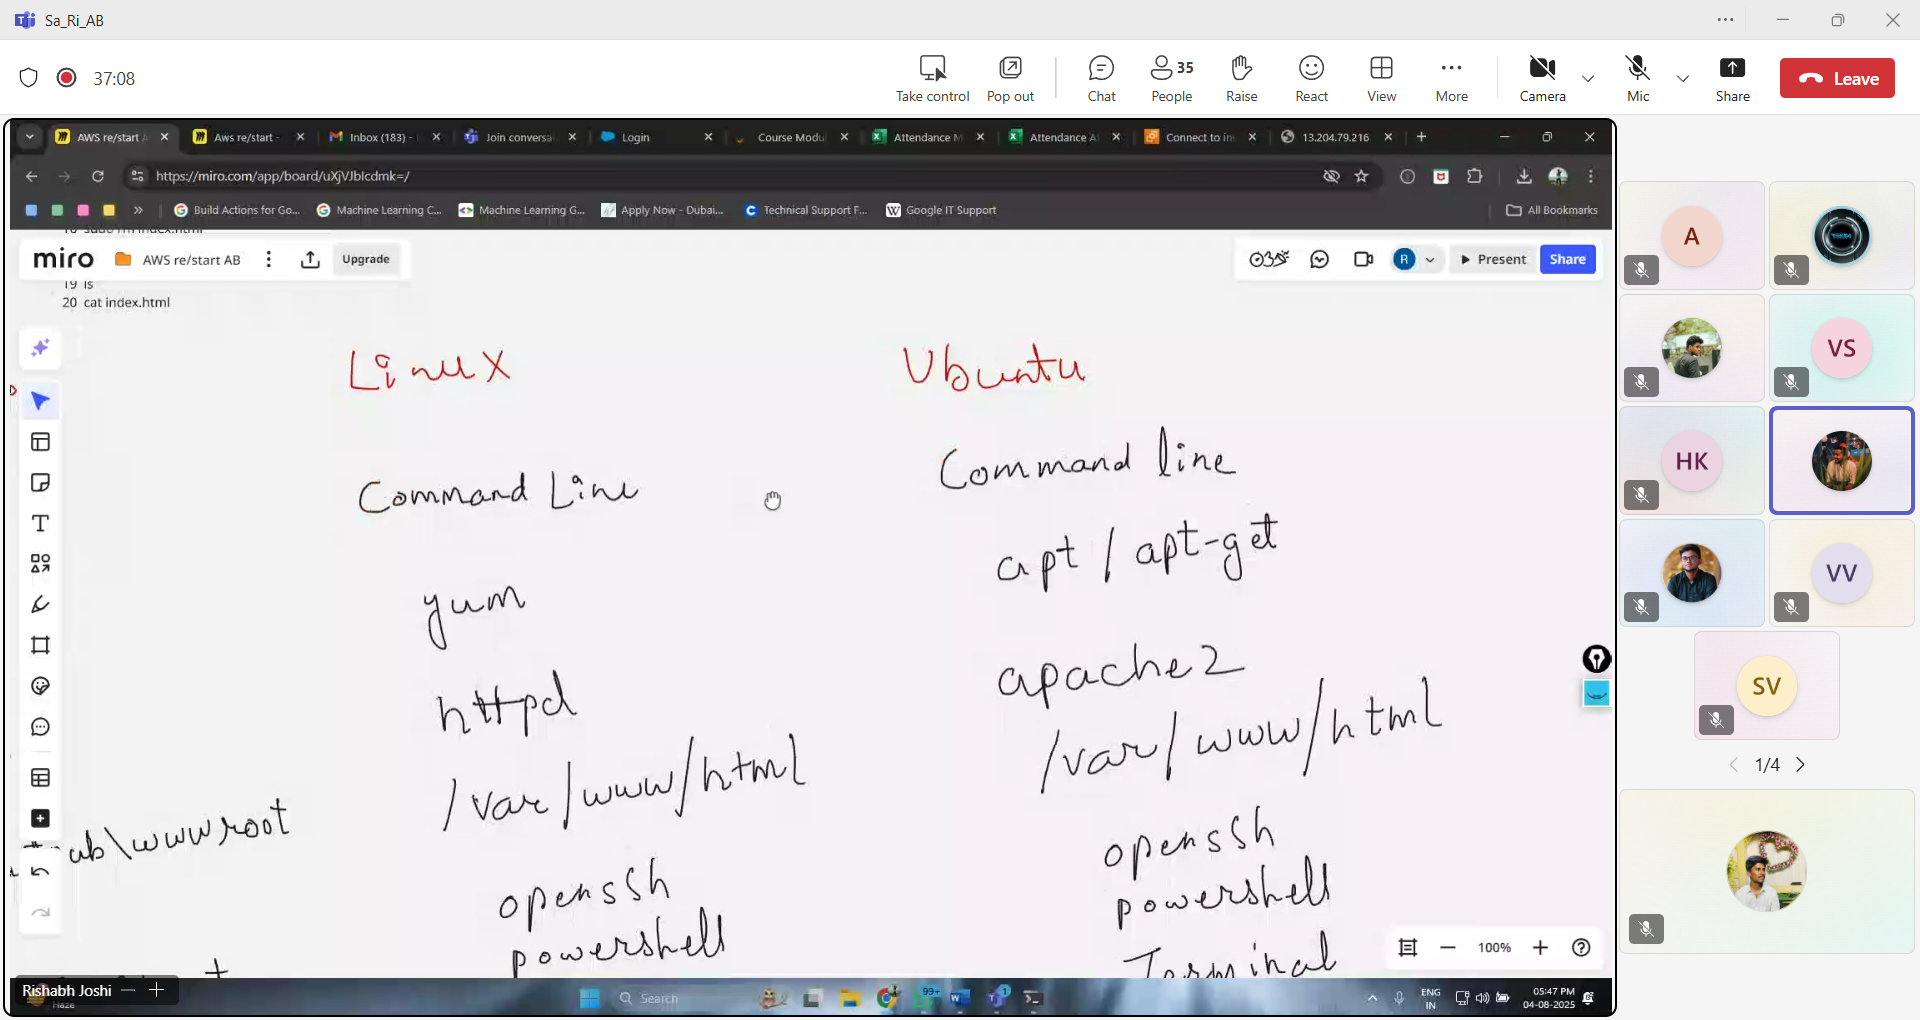 Sa_Ri_AB
37:08
Take control
Pop out
Chat
35
People
Raise
React
View
More
Camera
Mic
Share
Leave
AWS re/start A
Aws re/start -
Inbox (183) -
Join conversa
Login
Course Modu
Attendance M
Attendance A
Connect to in
13.204.79.216
https://miro.com/app/board/uXjVJbIcdmk=/
Build Actions for Go...
Machine Learning C...
Machine Learning G...
Apply Now - Dubai...
Technical Support F...
Google IT Support
All Bookmarks
miro
AWS re/start AB
Upgrade
R
Present
Share
19 ls
20 cat index.html
Linux
Ubuntu
Command Line
Command line
yum
apt / apt-get
httpd
apache2
/var/www/html
/var/www/html
ab\wwwroot
openssh
openssh
powershell
powershell
Terminal
100%
Rishabh Joshi
Haze
Search
99+
1
ENG
IN
05:47 PM
04-08-2025
A
VS
HK
VV
SV
1/4